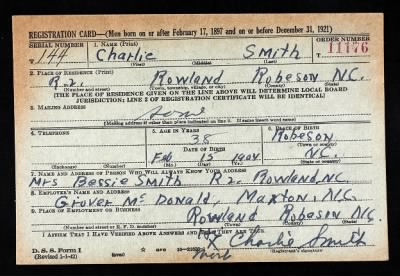 REGISTRATION CARD—(Men born on or after February 17, 1897 and on or before December 31, 1921)
SERIAL NUMBER 1. NAME (Print) ORDER NUMBER
T 144 Charlie Smith T 11176
(First) (Middle) (Last)
2. PLACE OF RESIDENCE (Print)
R.2. Rowland Robeson N.C.
(Number and street) (Town, township, village, or city) (County) (State)
[THE PLACE OF RESIDENCE GIVEN ON THE LINE ABOVE WILL DETERMINE LOCAL BOARD
JURISDICTION; LINE 2 OF REGISTRATION CERTIFICATE WILL BE IDENTICAL]
3. MAILING ADDRESS
Same
[Mailing address if other than place indicated on line 2. If same insert word same]
4. TELEPHONE 5. AGE IN YEARS 6. PLACE OF BIRTH
38 Robeson
DATE OF BIRTH (Town or county)
Feb 15 1904 N.C.
(Exchange) (Number) (Mo.) (Day) (Yr.) (State or country)
7. NAME AND ADDRESS OF PERSON WHO WILL ALWAYS KNOW YOUR ADDRESS
Mrs Bessie Smith R2. Rowland, NC
8. EMPLOYER'S NAME AND ADDRESS
Grover McDonald, Maxton, N.C.
9. PLACE OF EMPLOYMENT OR BUSINESS
Rowland Robeson N.C.
(Number and street or R. F. D. number) (Town) (County) (State)
I AFFIRM THAT I HAVE VERIFIED ABOVE ANSWERS AND THAT THEY ARE TRUE.
D. S. S. Form 1 X Charlie Smith
(Revised 1-1-42) (Registrant's signature)